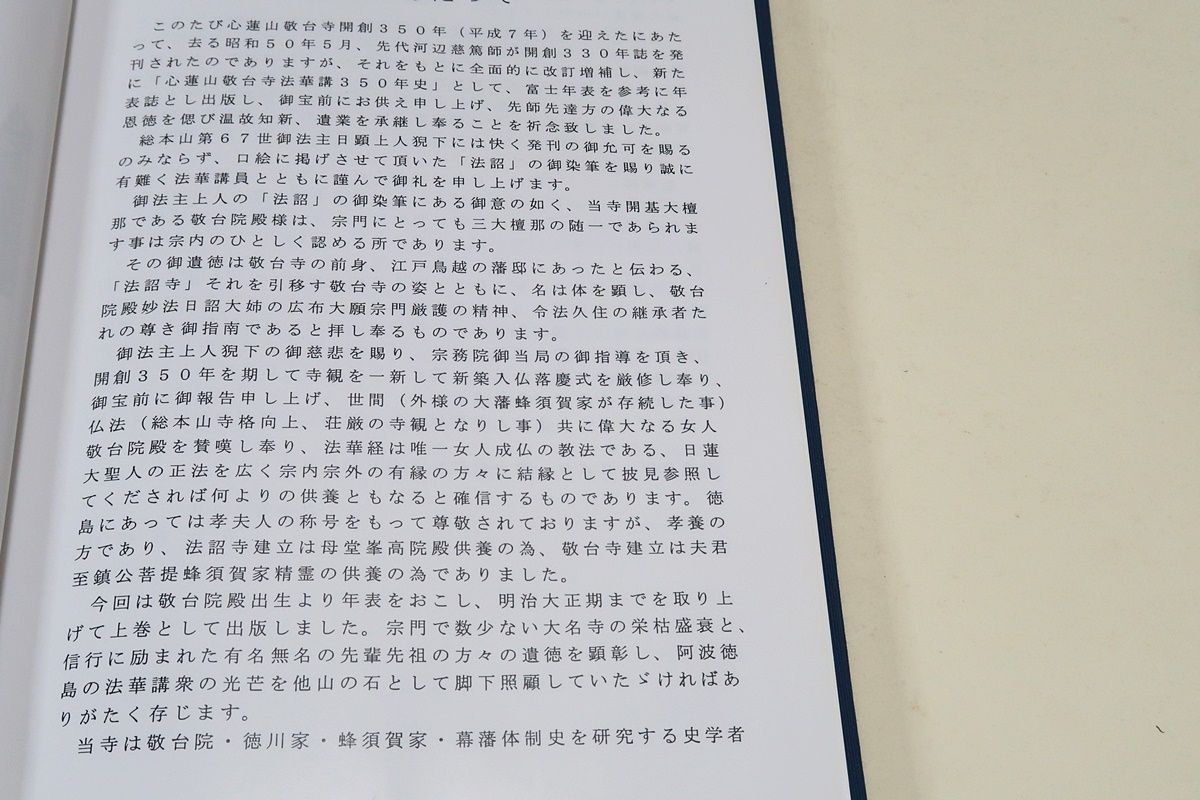 このたび心蓮山敬台寺開創３５０年（平成７年）を迎えたにあた
って、去る昭和５０年５月、先代河辺慈篤師が開創３３０年誌を発
刊されたのでありますが、それをもとに全面的に改訂増補し、新た
に「心蓮山敬台寺法華講３５０年史」として、富士年表を参考に年
表誌とし出版し、御宝前にお供え申し上げ、先師先達方の偉大なる
恩徳を偲び温故知新、遺業を承継し奉ることを祈念致しました。
総本山第６７世御法主日顕上人猊下には快く発刊の御允可を賜る
のみならず、口絵に掲げさせて頂いた「法詔」の御染筆を賜り誠に
有難く法華講員とともに謹んで御礼を申し上げます。
御法主上人の「法詔」の御染筆にある御意の如く、当寺開基大檀
那である敬台院殿様は、宗門にとっても三大檀那の随一であられま
す事は宗内のひとしく認める所であります。
その御遺徳は敬台寺の前身、江戸鳥越の藩邸にあったと伝わる、
「法詔寺」それを引移す敬台寺の姿とともに、名は体を顕し、敬台
院殿妙法日詔大姉の広布大願宗門厳護の精神、令法久住の継承者た
れの尊き御指南であると拝し奉るものであります。
御法主上人猊下の御慈悲を賜り、宗務院御当局の御指導を頂き、
開創３５０年を期して寺観を一新して新築入仏落慶式を厳修し奉り、
御宝前に御報告申し上げ、世間（外様の大藩蜂須賀家が存続した事）
仏法（総本山寺格向上、荘厳の寺観となりし事）共に偉大なる女人
敬台院殿を賛嘆し奉り、法華経は唯一女人成仏の教法である、日蓮
大聖人の正法を広く宗内宗外の有縁の方々に結縁として披見参照し
てくだされば何よりの供養ともなると確信するものであります。徳
島にあっては孝夫人の称号をもって尊敬されておりますが、孝養の
方であり、法詔寺建立は母堂峯高院殿供養の為、敬台寺建立は夫君
至鎮公菩提蜂須賀家精霊の供養の為でありました。
今回は敬台院殿出生より年表をおこし、明治大正期までを取り上
げて上巻として出版しました。宗門で数少ない大名寺の栄枯盛衰と、
信行に励まれた有名無名の先輩先祖の方々の遺徳を顕彰し、阿波徳
島の法華講衆の光芒を他山の石として脚下照顧していたゞければあ
りがたく存じます。
当寺は敬台院・徳川家・蜂須賀家・幕藩体制史を研究する史学者